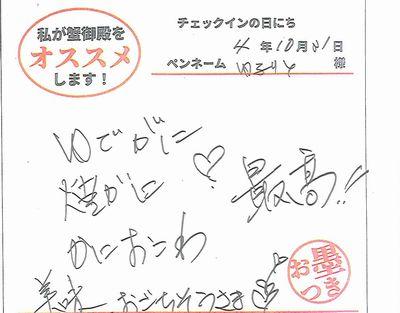 私が蟹御殿を
オススメ
します!
チェックインの日にち
4年10月31日
ペンネーム ゆうりん 様
ゆでがに
焼がに ♡ 最高!!
かにおこわ
美味 おごちそうさま
お墨つき